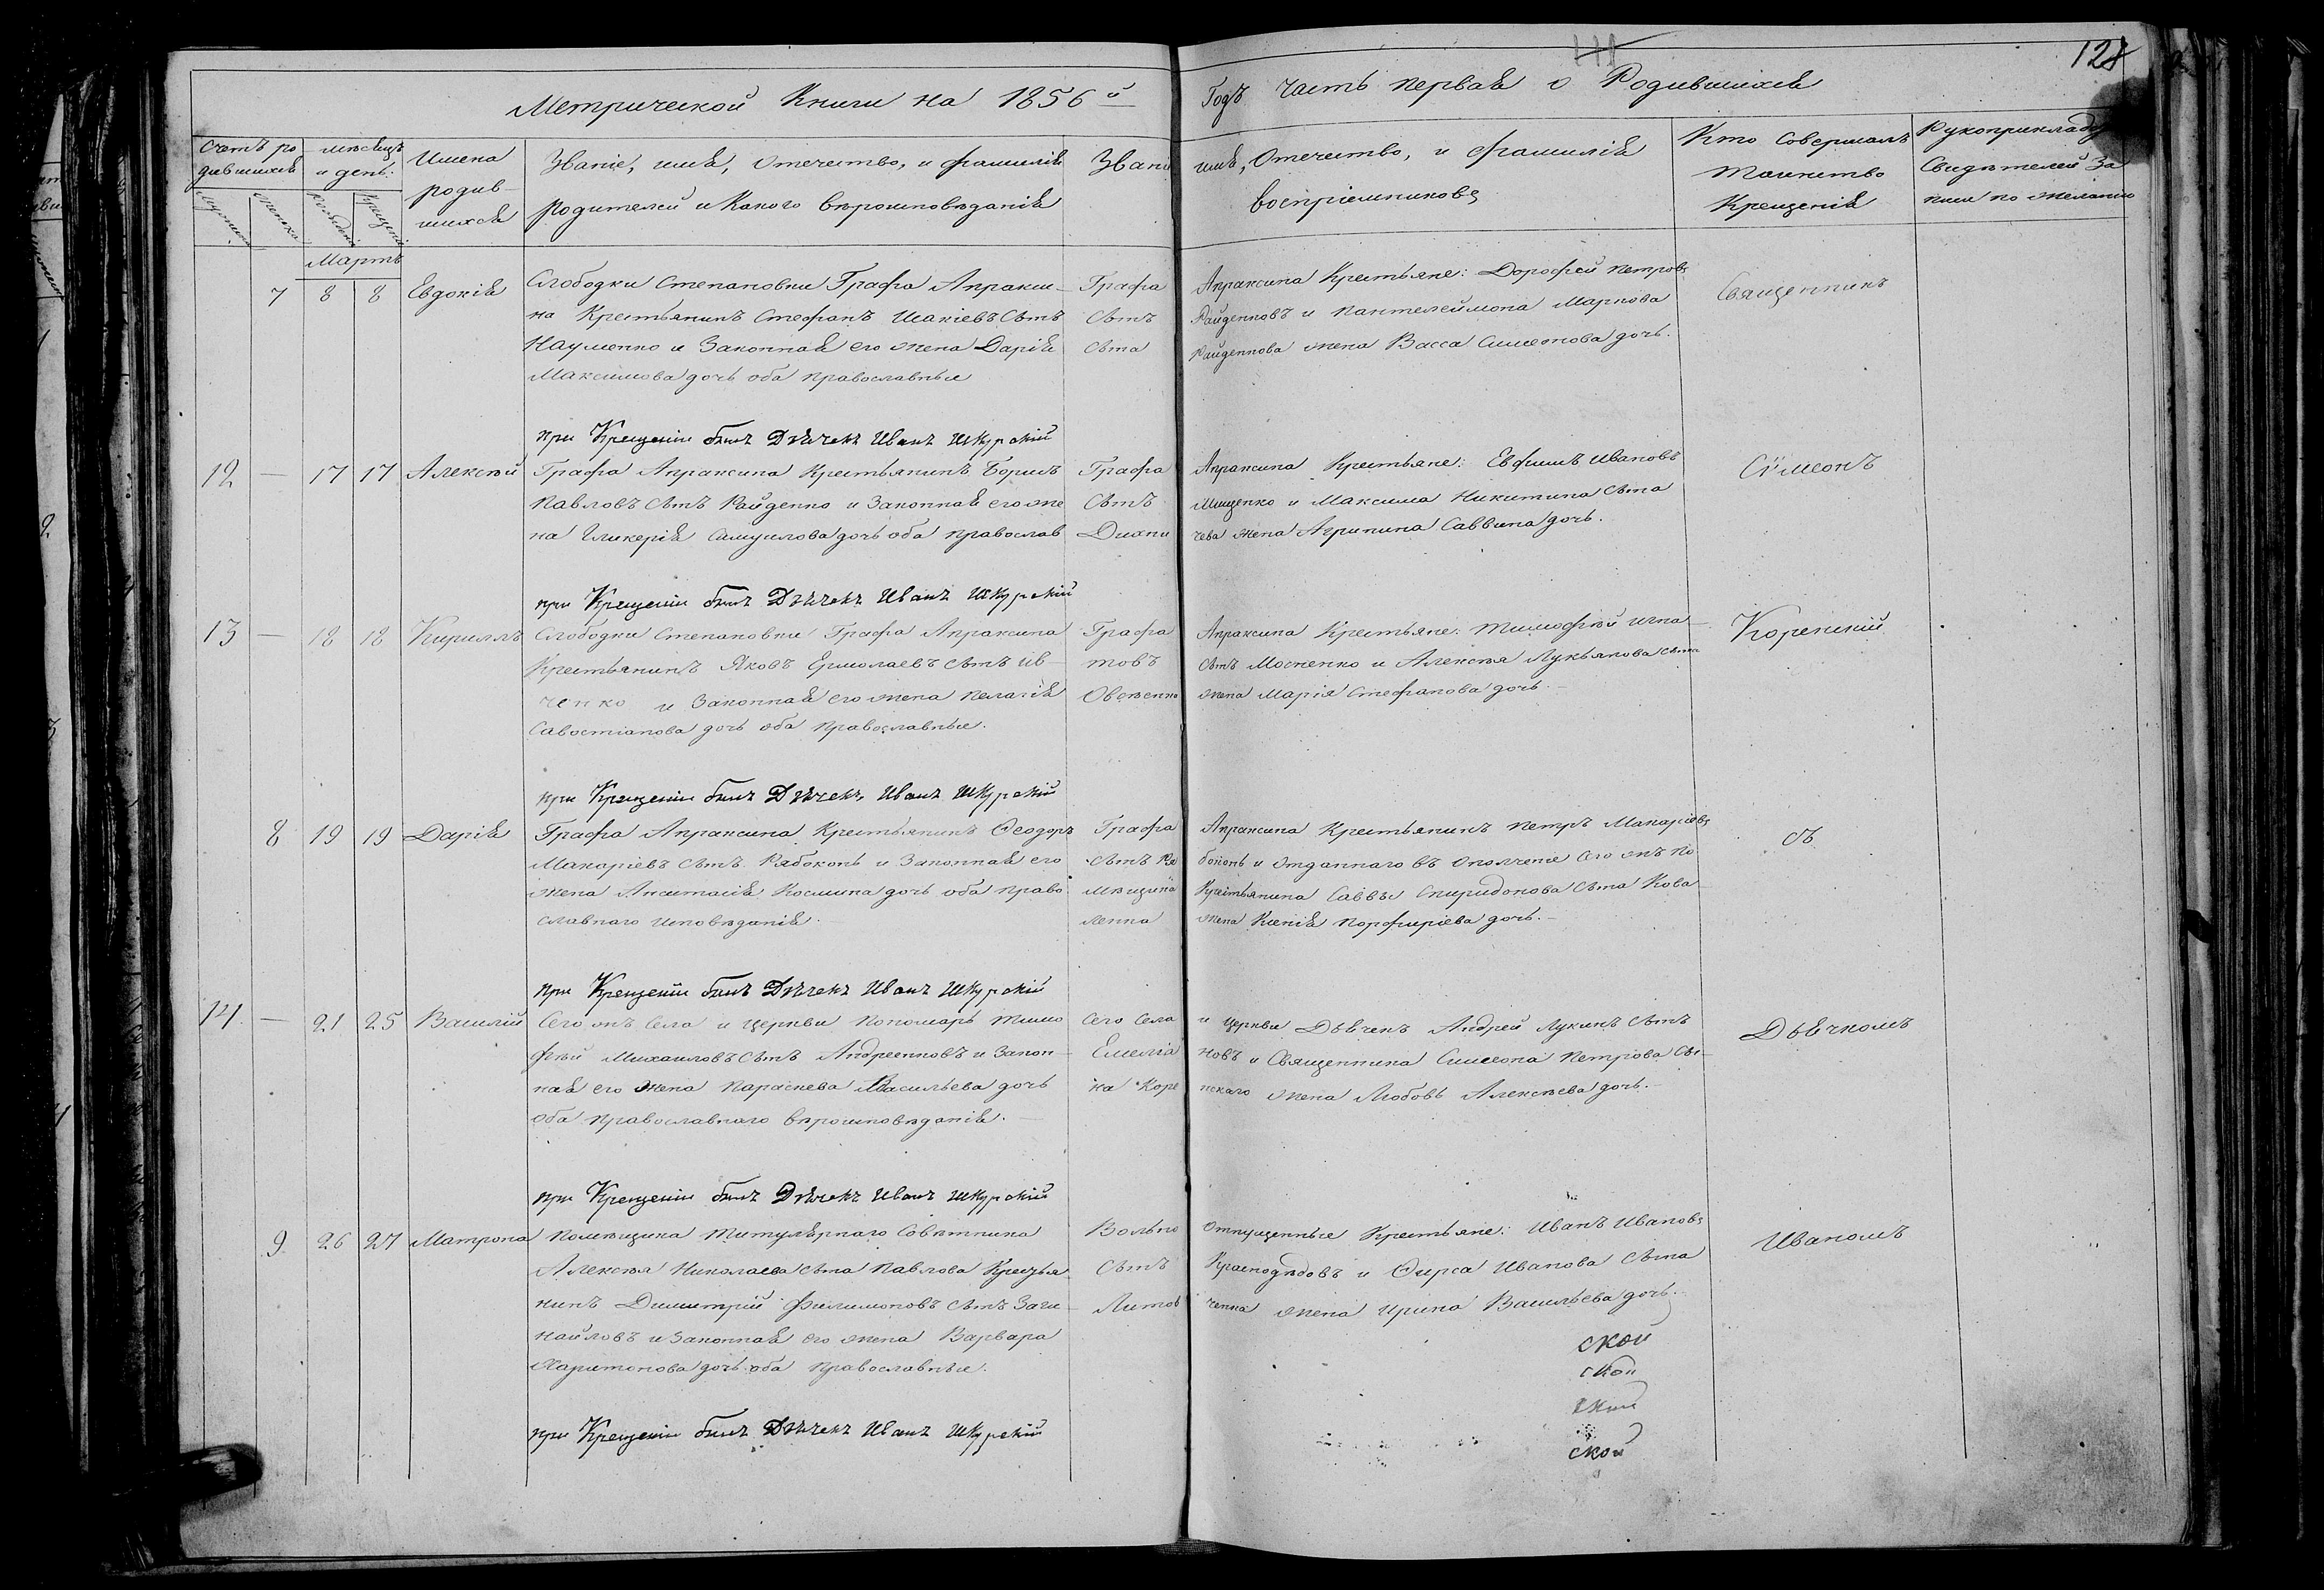 111
128
Метрической Книги на 1856й Годъ Часть первая о Родившихся
Счетъ ро
дившихся
мѣсяцъ
и день.
Имена
родив-
шихся
Званіе, имя, отечество, и фамилія
родителей и какого вѣроисповѣданія
Званіе имя, Отечество, и фамилія
воспріемниковъ
Кто Совершалъ
Таинство
Крещенія
Рукоприклад
Свидѣтелей За
писи по желанію
Мартъ
7 8 8 Евдокія
Слободки Степановки Графа Апракси-
на Крестьянинъ Стефанъ Исакіевъ Сынъ
Науменко и Законная его жена Дарія
Максимова дочь оба православные
Графа Апраксина Крестьяне: Дорофей Петровъ
Сынъ Райденковъ и Пантелеймона Маркова
Сына Райденкова жена Васса Симеонова дочь.
Священникъ
при Крещеніи былъ Дьячекъ Иванъ Шкурскій
12 — 17 17 Алексѣй
Графа Апраксина Крестьянинъ Борисъ
Павловъ Сынъ Райденко и Законная его же
на Гликерія Самуилова дочь оба православ
Графа Апраксина Крестьяне: Евфимъ Ивановъ
Сынъ Мищенко и Максима Никитина Сына
Дихти чева жена Агрипина Саввина дочь.
Сѵмеонъ
при Крещеніи былъ Дьячекъ Иванъ Шкурскій
13 — 18 18 Кириллъ
Слободки Степановки Графа Апраксина
Крестьянинъ Яковъ Ермолаевъ Сынъ Ив-
ченко и Законная его жена Пелагія
Савостіанова дочь оба Православные.
Графа Апраксина Крестьяне: Тимофѣй Игна
товъ Сынъ Мосненко и Алексѣя Лукьянова Сына
Овсѣенка жена Марія Стефанова дочь.
Коренскій
при Крещеніи былъ Дьячекъ Иванъ Шкурскій
8 19 19 Дарія
Графа Апраксина Крестьянинъ Ѳеодоръ
Макаріевъ Сынъ Рябоконь и Законная его
жена Анастасія Космина дочь оба право
славнаго исповѣданія.
Графа Апраксина Крестьянинъ Петръ Макаріевъ
Сынъ Ря боконь и отданнаго въ ополченіе сего жъ По
мѣщика Крестьянина Саввы Спиридонова Сына Кова
ленка жена Ксенія Порфиріева дочь.
съ
при Крещеніи былъ Дьячекъ Иванъ Шкурскій
14 — 21 25 Василій
Сего жъ Села и Церкви Пономарь Тимо
фѣй Михаиловъ Сынъ Андреенковъ и Закон-
ная его жена Параскева Васильева дочь
оба Православнаго вѣроисповѣданія.
Сего Села и Церкви Дьячекъ Андрей Лукинъ Сынъ
Емелья новъ и Священника Симеона Петрова Сы-
на Коре нскаго жена Любовь Алексѣева дочь.
Дьячкомъ
при Крещеніи былъ Дьячекъ Иванъ Шкурскій
9 26 27 Матрона
Помѣщика Титулярнаго Совѣтника
Алексѣя Николаева Сына Павлова Крестья
нинъ Димитрій Филимоновъ Сынъ Заги-
найловъ и Законная его жена Варвара
Харитонова дочь оба Православные.
Вольно Отпущенные Крестьяне: Иванъ Ивановъ
Сынъ Красподѣдовъ и Ѳирса Иванова Сына
Литов ченка жена Ирина Васильева дочь.
Иваномъ
ской
ской
ской
ской
при Крещеніи былъ Дьячекъ Иванъ Шкурскій